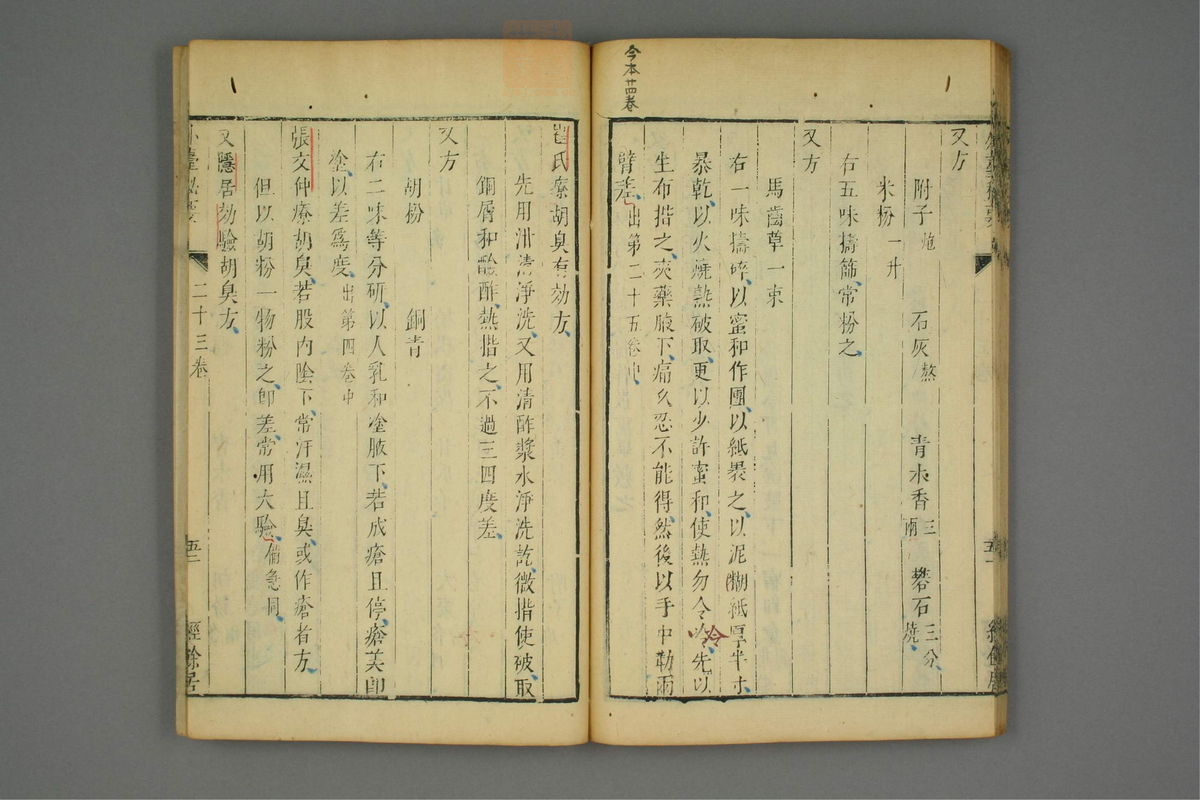 今本廿四卷
又方
附子炮 石灰熬 青木香三兩 礬石三分燒
米粉一升
右五味擣篩常粉之
又方
馬齒草一束
右一味擣碎以蜜和作團以紙裹之以泥糊紙厚半寸
暴乾以火燒熟破取更以少許蜜和使熱勿令冷先以
冷
生布揩之夾藥腋下痛久忍不能得然後以手巾勒兩
臂差出第二十五卷中
崔氏療胡臭有効方
先用泔清淨洗又用清酢漿水淨洗訖微揩使破取
銅屑和酸酢熱揩之不過三四度差
又方
胡粉 銅青
右二味等分研以人乳和塗腋下若成瘡且停瘡美即
塗以差爲度出第四卷中
張文仲療胡臭若股內陰下常汗濕且臭或作瘡者方
但以胡粉一物粉之即差常用大驗備急同
又隱居効驗胡臭方
二十三卷 經餘居